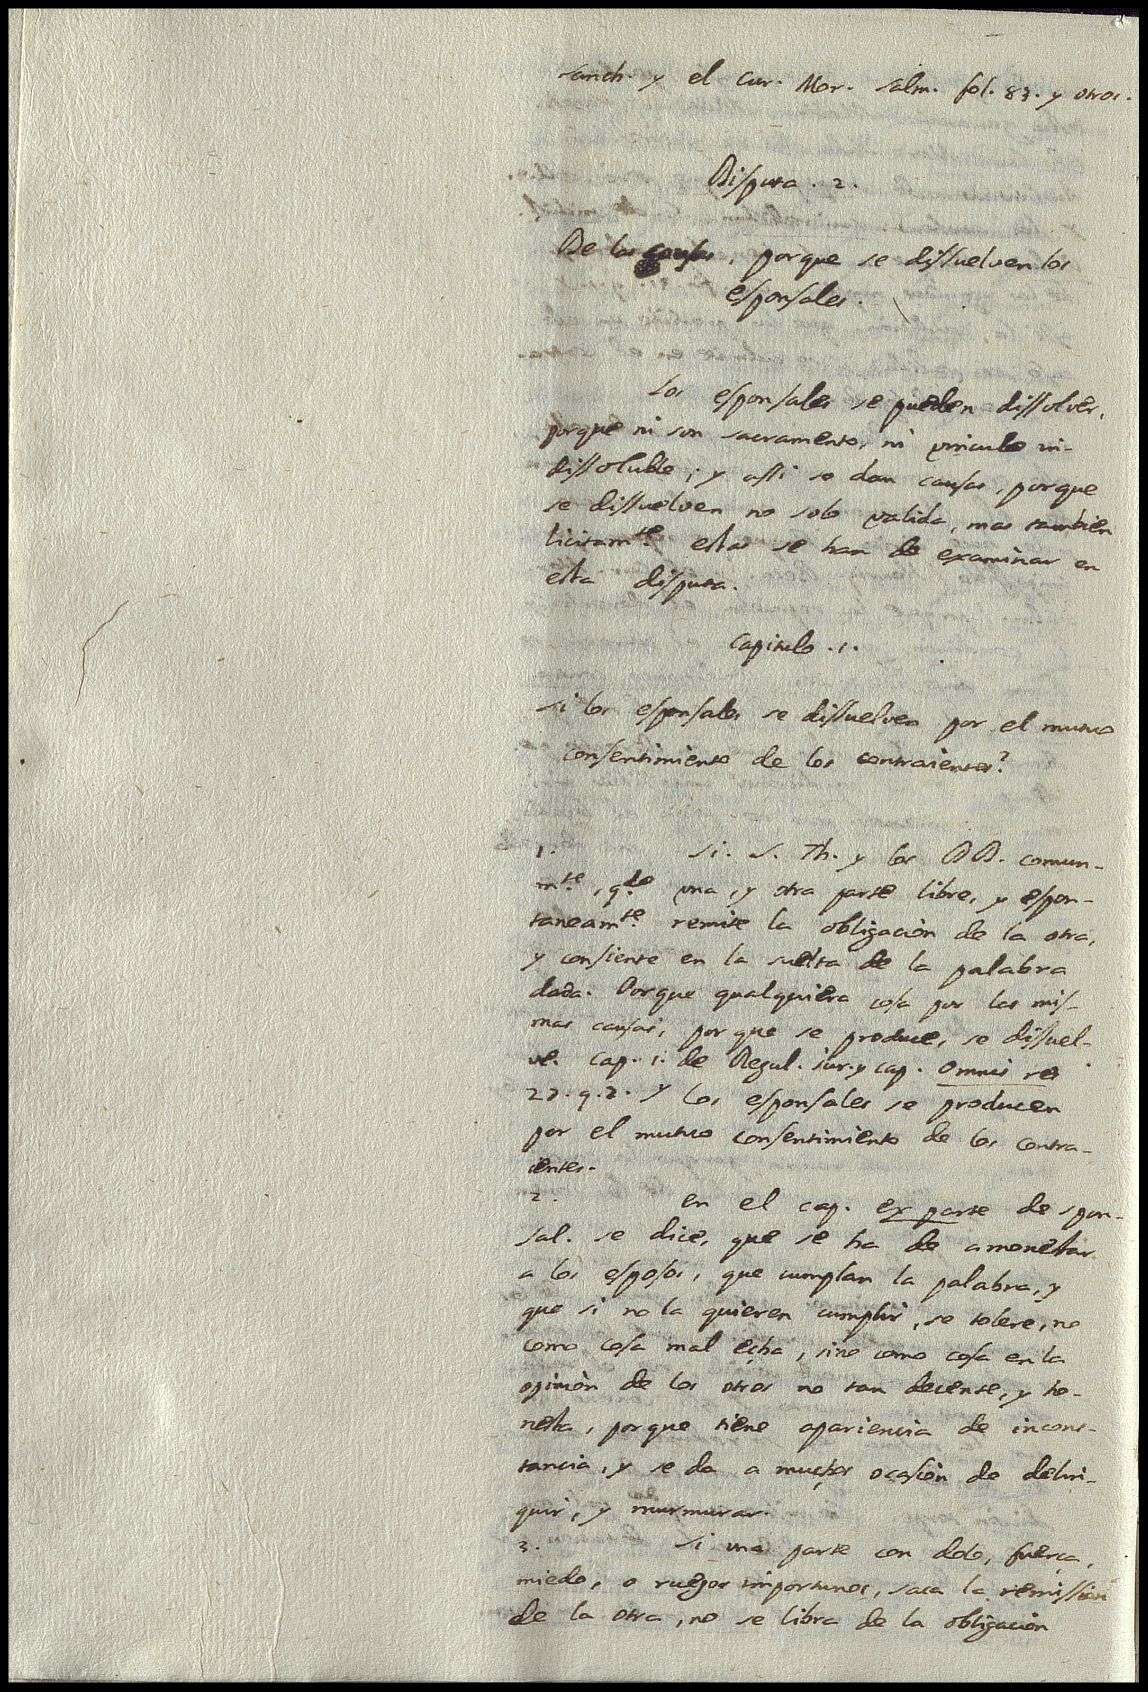 Sanch. y el Cur. Mor. Salm. fol. 83. y otros.
Disputa. 2.
De las causas, porque se dissuelven los
esponsales.
Los esponsales se pueden dissolver,
porque ni son sacramento, ni vinculo in-
dissoluble; y assi se dan causas, porque
se dissuelven no solo valida, mas tambien
licitamte. estas se han de examinar en
esta disputa.
Capitulo .1.
Si los esponsales se dissuelven por el mutuo
consentimiento de los contraientes?
1. Si. S. Th. y los DD. comun-
mte., qdo una, y otra parte libre, y espon-
taneamte. remite la obligación de la otra,
y consiente en la suelta de la palabra
dada. Porque qualquiera cosa por las mis-
mas causas, por que se produce, se dissuel-
ve. cap. 1. de Regul. iur. y cap. Omnis res
27. q. 2. y los esponsales se producen
por el mutuo consentimiento de los contra-
ientes.
2. en el cap. ex parte de spon-
sal. se dice, que se ha de amonestar
a los esposos, que cumplan la palabra, y
que si no la quieren cumplir, se tolere, no
como cosa mal echa, sino como cosa en la
opinión de los otros no tan decente, y ho-
nesta, porque tiene apariencia de incons-
tancia, y se da a muchos ocasión de delin-
quir, y murmurar.
3. Si una parte con dolo, fuerça,
miedo, o ruegos importunos, saca la remissión
de la otra, no se libra de la obligación